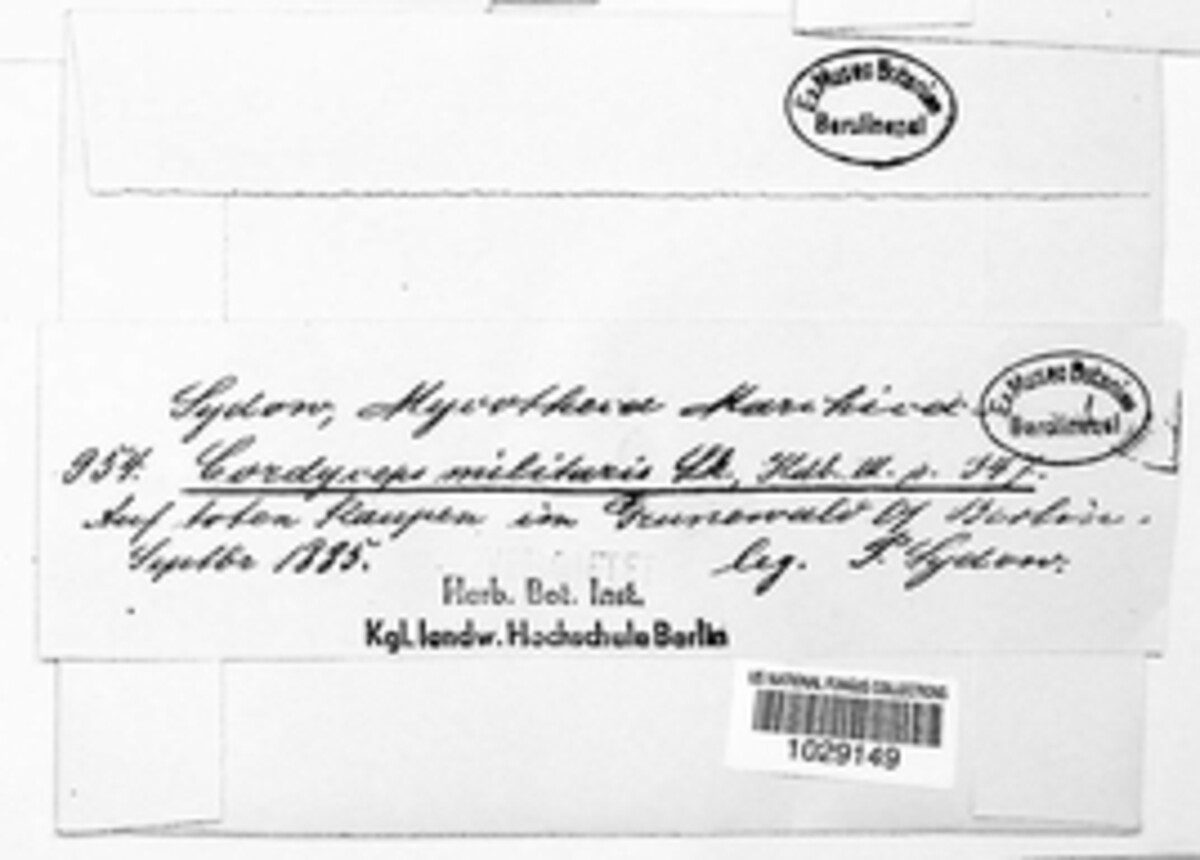 Ex Museo Botanico
Berolinensi
Sydow, Mycotheca Marchica
Ex Museo Botanico
Berolinensi
954. Cordyceps militaris Lk, Hdb. III. p. 347.
Auf toten Raupen im Grunewald b/ Berlin.
Septbr 1885. leg. P. Sydow.
Herb. Bot. Inst.
Kgl. landw. Hochschule Berlin
US NATIONAL FUNGUS COLLECTIONS
1029149